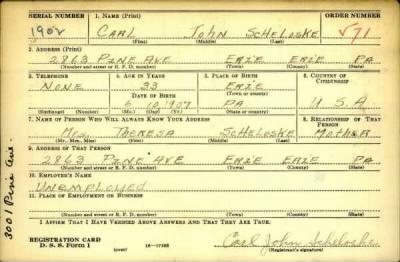 SERIAL NUMBER 1. NAME (Print) ORDER NUMBER
1902 CARL JOHN SCHELOSKE V71
(First) (Middle) (Last)
2. ADDRESS (Print)
2863 PINE AVE ERIE ERIE PA
(Number and street or R. F. D. number) (Town) (County) (State)
3. TELEPHONE 4. AGE IN YEARS 5. PLACE OF BIRTH 6. COUNTRY OF CITIZENSHIP
NONE 33 ERIE
DATE OF BIRTH (Town or county)
5 10 1907 PA U.S.A.
(Exchange) (Number) (Mo.) (Day) (Yr.) (State or country)
7. NAME OF PERSON WHO WILL ALWAYS KNOW YOUR ADDRESS 8. RELATIONSHIP OF THAT PERSON
MRS. THERESA SCHELOSKE MOTHER
(Mr., Mrs., Miss) (First) (Middle) (Last)
9. ADDRESS OF THAT PERSON
2863 PINE AVE ERIE ERIE PA
(Number and street or R. F. D. number) (Town) (County) (State)
10. EMPLOYER'S NAME
UNEMPLOYED
11. PLACE OF EMPLOYMENT OR BUSINESS
(Number and street or R. F. D. number) (Town) (County) (State)
I AFFIRM THAT I HAVE VERIFIED ABOVE ANSWERS AND THAT THEY ARE TRUE.
REGISTRATION CARD
D. S. S. Form 1 (over) 16—17105 Carl John Scheloske
(Registrant's signature)
3001 Pine Ave.